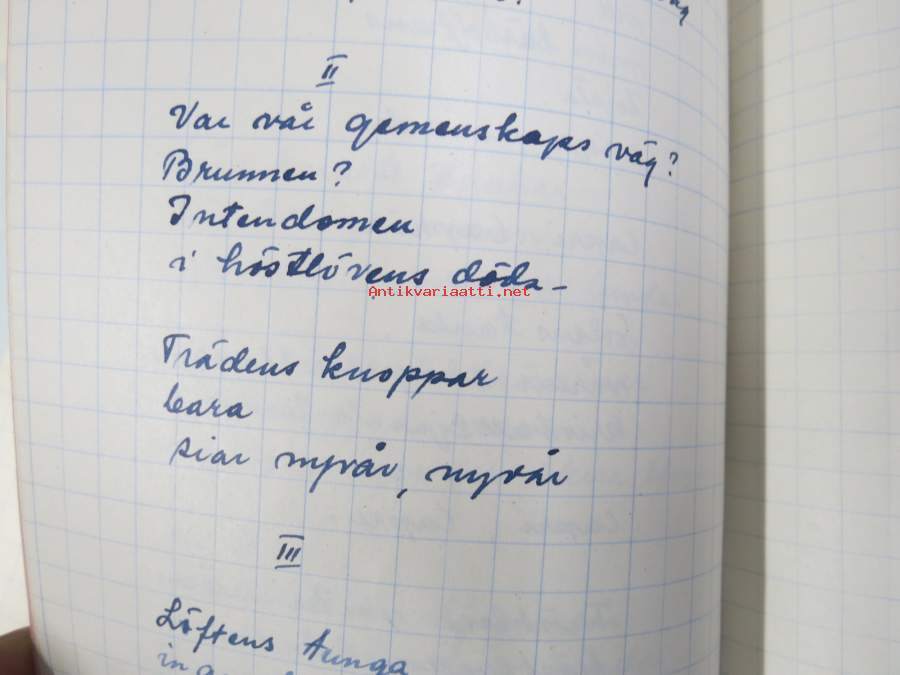 II
Var vår gemenskaps väg?
Brunnen?
Intendomen
i höstlövens döda –
Antikvariaatti.net
Trädens knoppar
bara
siar nyvår, nyvår
III
Löftens tunga